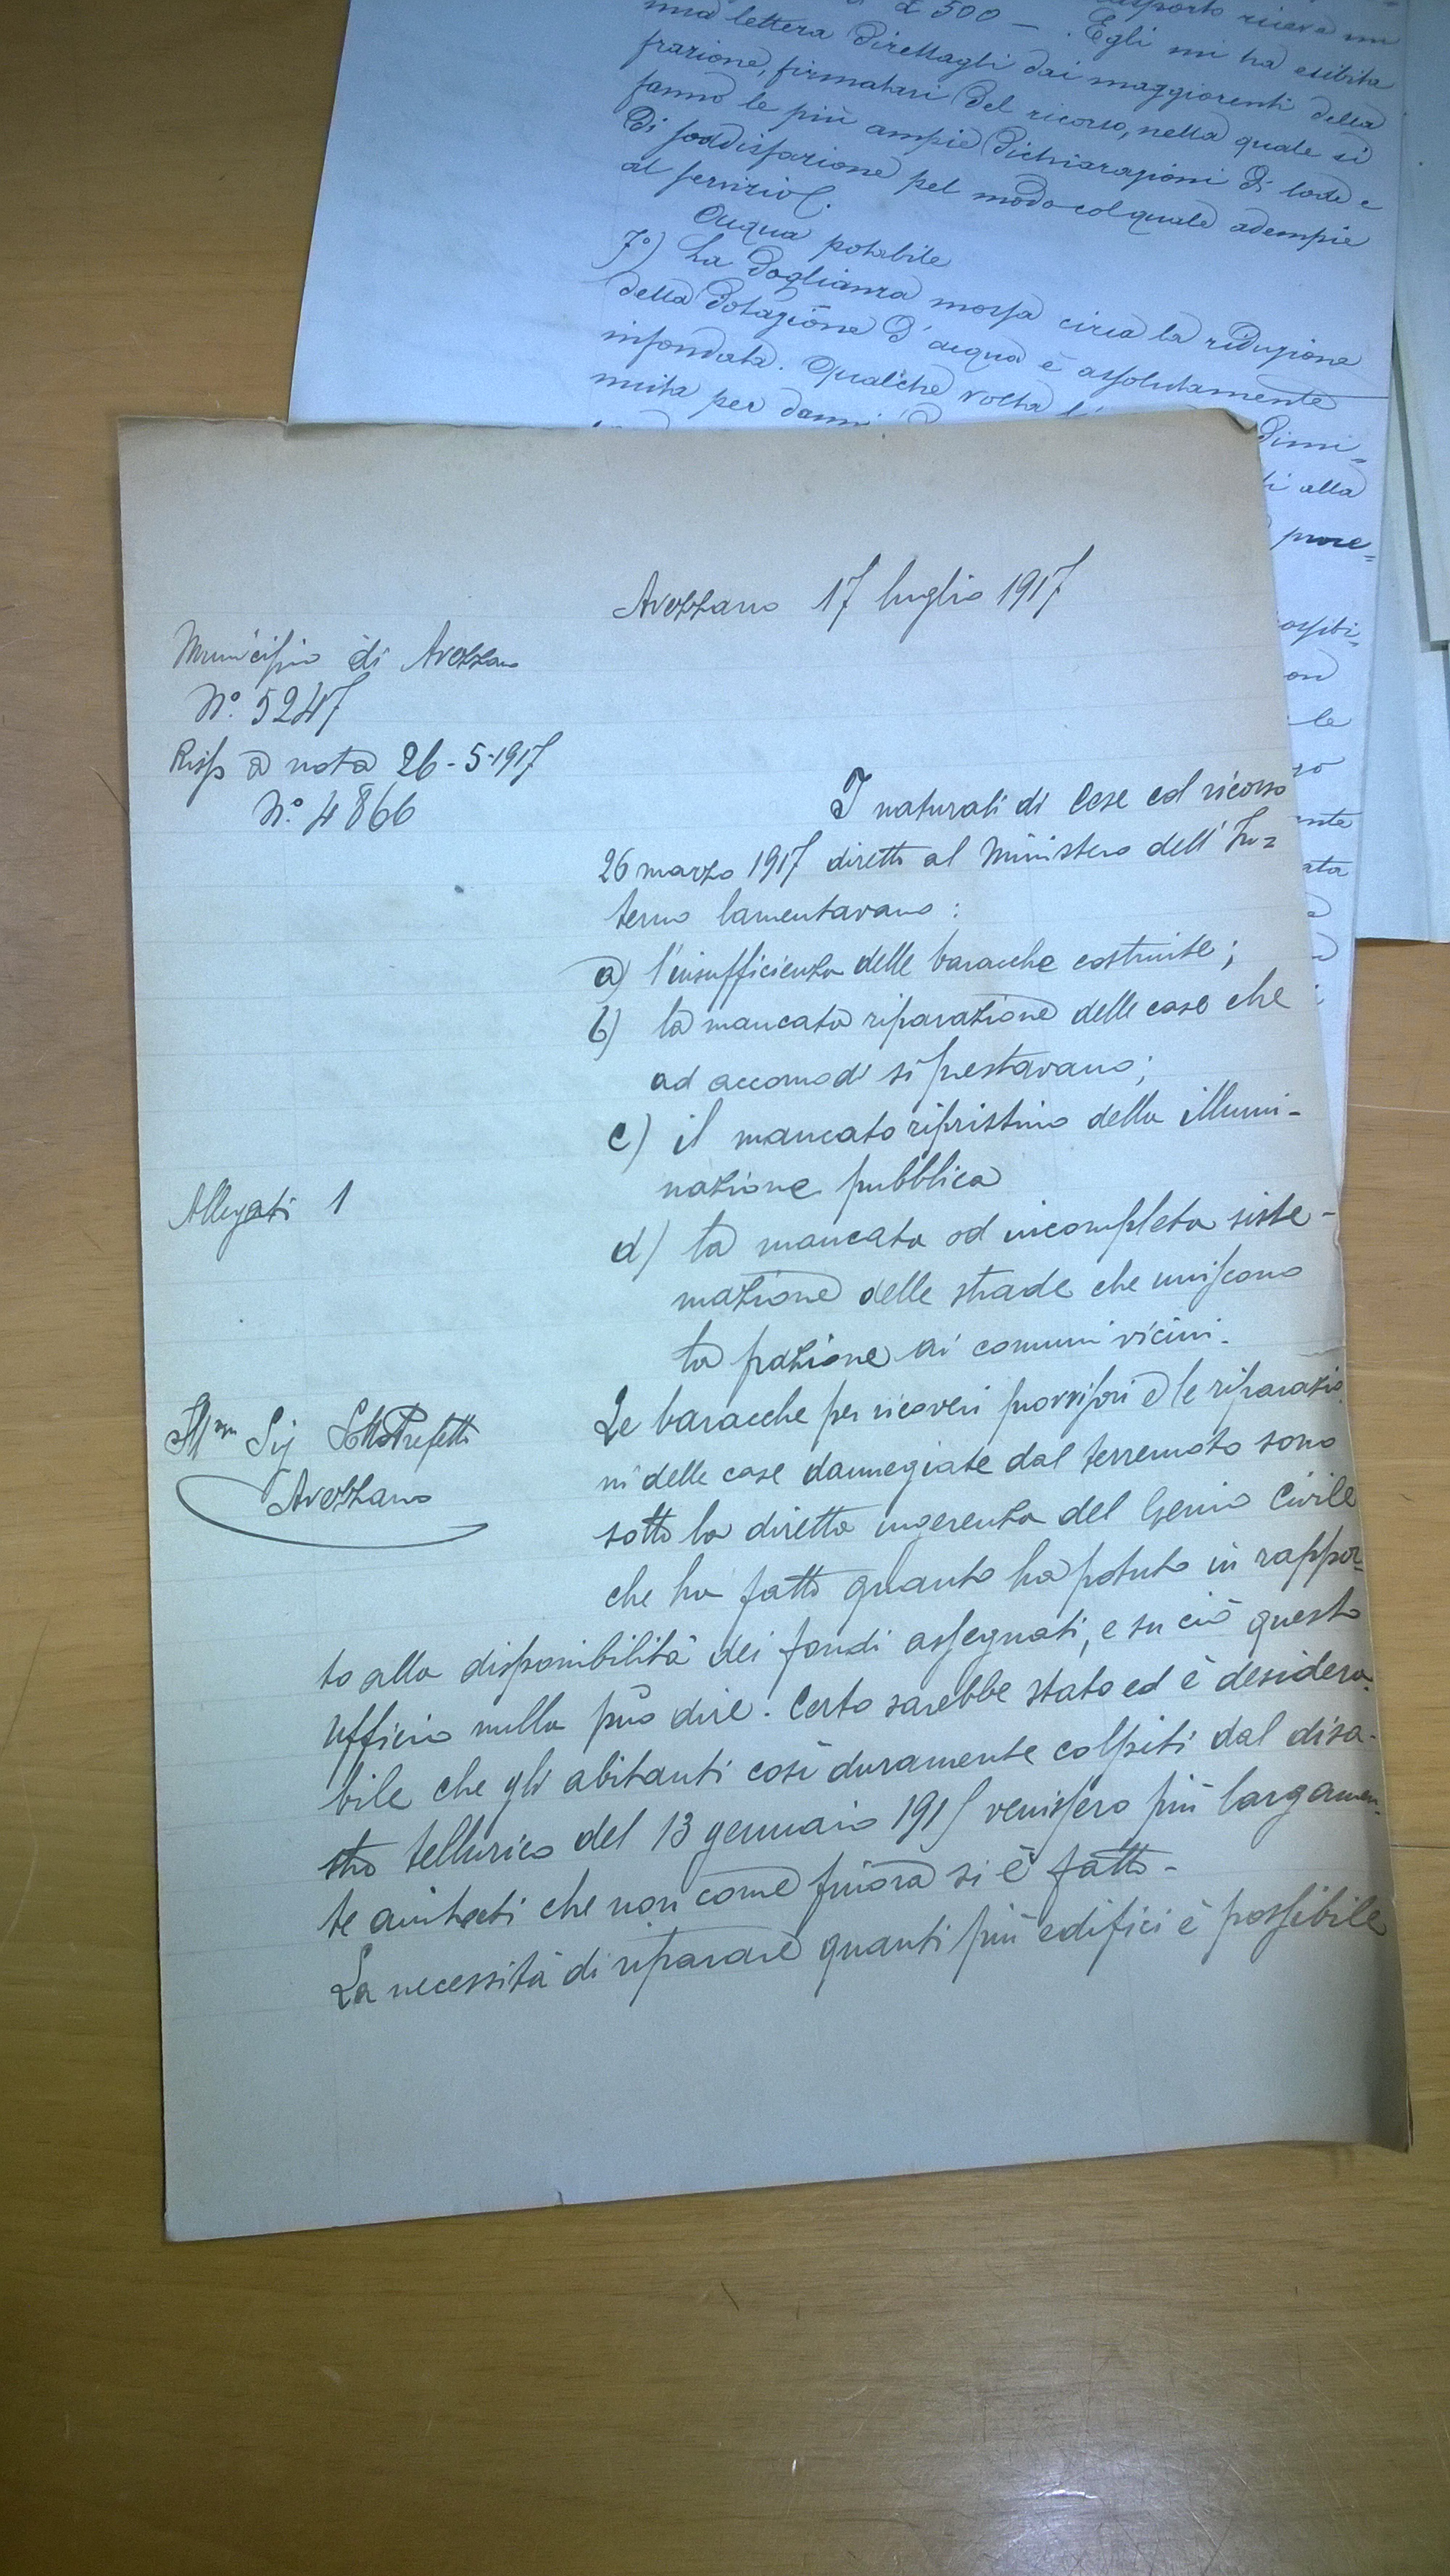 £ 500 — . Egli mi ha esibita
una lettera direttagli dai maggiorenti della
frazione, firmatari del ricorso, nella quale si
fanno le più ampie dichiarazioni di lode e
di soddisfazione pel modo col quale adempie
al servizio.
Acqua potabile
7°) La doglianza mossa circa la riduzione
della dotazione d'acqua è assolutamente
infondata. Qualche volta l'
nuita per danni
dimi=
alla
Avezzano 17 luglio 1917
Municipio di Avezzano
N.° 5247
Risp a nota 26-5-1917
N.° 4866
I naturali di Cese col ricorso
26 marzo 1917 diretto al Ministero dell'In=
terno lamentavano :
a) l'insufficienza delle baracche costruite ;
b) la mancata riparazione delle case che
ad accomodi si prestavano ;
c) il mancato ripristino della illumi-
nazione pubblica
d) la mancata od incompleta siste-
mazione delle strade che uniscono
la frazione ai comuni vicini.
Allegati 1
Ill.mo Sig SottoPrefetto
Avezzano
Le baracche per ricoveri provvisori e le riparazio
ni delle case dannegiate dal terremoto sono
sotto la diretta ingerenza del Genio Civile
che ha fatto quanto ha potuto in rappor-
to alla disponibilità dei fondi assegnati, e su ciò questo
ufficio nulla può dire. Certo sarebbe stato ed è desidera-
bile che gli abitanti così duramente colpiti dal disa-
stro tellurico del 13 gennaio 1915 venissero più largamen-
te aiutati che non come finora si è fatto -
La necessità di riparare quanti più edifici è possibile